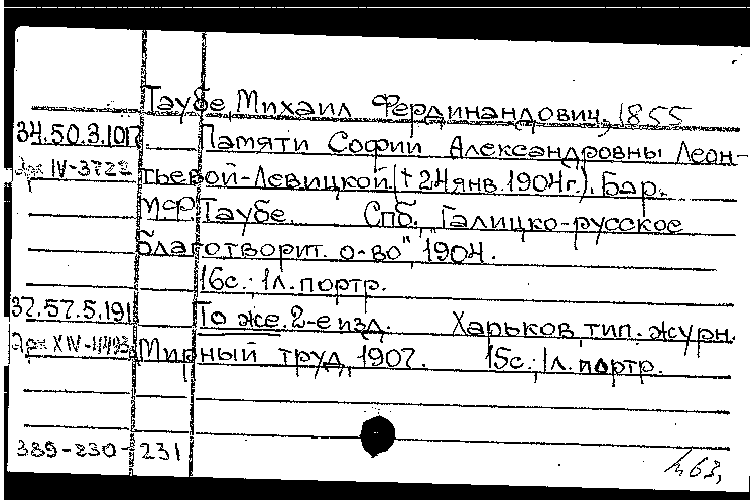 Таубе, Михаил Фердинандович, 1855
34.50.3.1017 Памяти Софии Александровны Леон-
IV-3722 тьевой-Левицкой (†24 янв. 1904 г.). Бар.
М.Ф. Таубе. Спб., Галицко-русское
благотворит. о-во", 1904.
16с.; 1л. портр.
37.57.5.191 То же. 2-е изд. Харьков, тип. журн.
XIV-4493 Мирный труд, 1907. 15с.; 1л. портр.
389-230-231